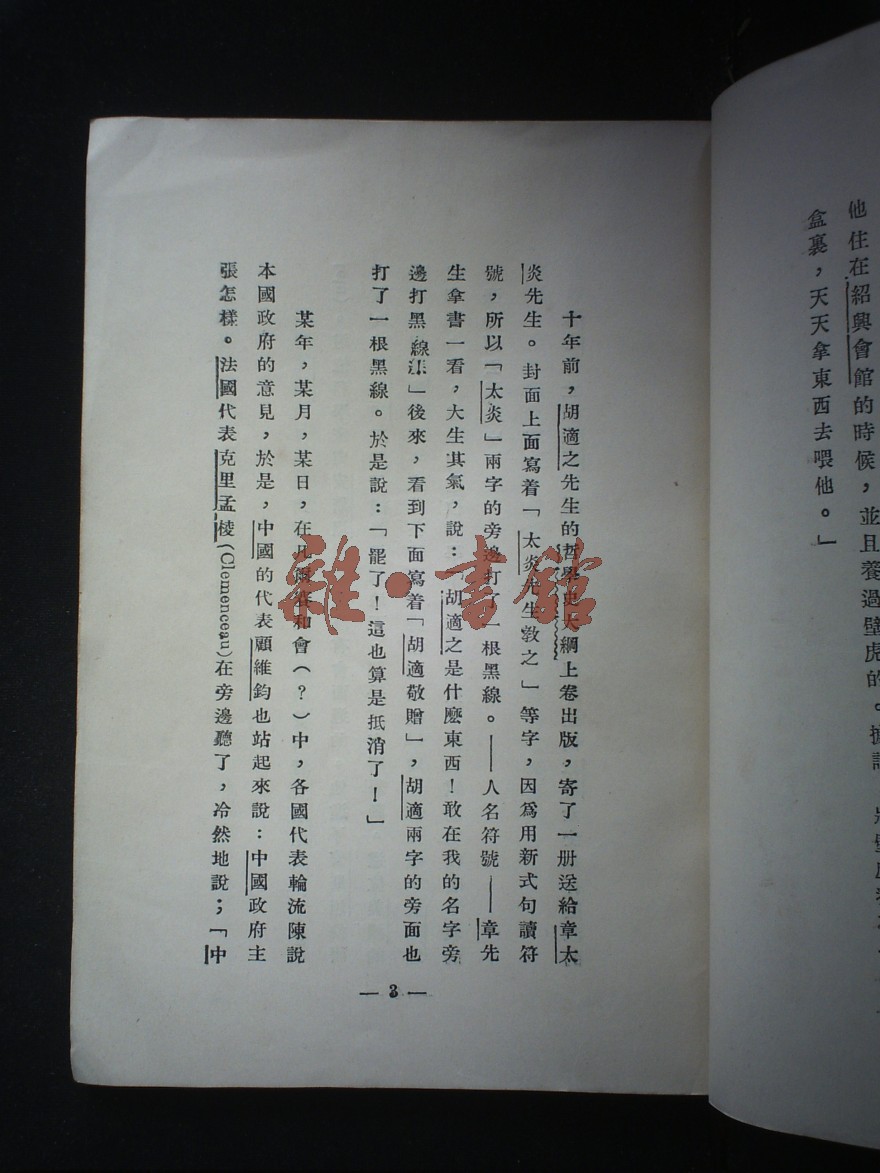 他住在紹興會館的時候，並且養過壁虎的。據說
盒裏，天天拿東西去喂他。」
十年前，胡適之先生的哲學史大綱上卷出版，寄了一册送給章太
炎先生。封面上面寫着「太炎先生敎之」等字，因爲用新式句讀符
號，所以「太炎」兩字的旁邊打了一根黑線。——人名符號——章先
生拿書一看，大生其氣，說：「胡適之是什麽東西！敢在我的名字旁
邊打黑線！」後來，看到下面寫着「胡適敬贈」，胡適兩字的旁面也
打了一根黑線。於是說：「罷了！這也算是抵消了！」
某年，某月，某日，在凡和會（？）中，各國代表輪流陳說
本國政府的意見，於是，中國的代表顧維鈞也站起來說：中國政府主
張怎樣。法國代表克里孟棱(Clemenceau)在旁邊聽了，冷然地說；「中
— 3 —
雜·書館